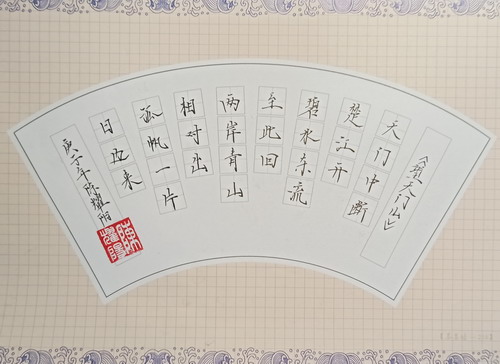 《望天门山》
天门中断
楚江开
碧水东流
至此回
两岸青山
相对出
孤帆一片
日边来
庚子年陈耀阶